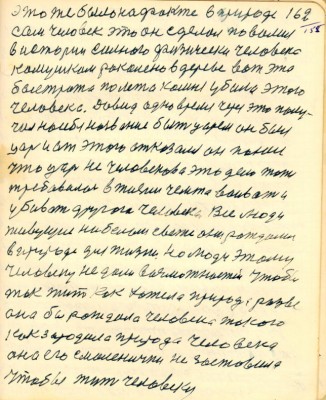 это же было на факте в природе 162
сам человек это он сделал повалил 155
в истории сильного физически человека
камушком роколено в дерево вот эта
быстрота полёта камня убила этого
человека. Давид одно время через это полу-
чил на себя название быть царём он был
царь и от этого отказался он понял
что царь не человеково это дело тоже
требовалось в жизни чем-то воевать и
убивать другого человека. Все люди
живущие на белом свете они рождались
в природе для жизни но люди этому
человеку не дали возможности чтобы
так жить как хотела природа разве
она бы рождала человека такого
как зародила природа человека
она его смолечки не заставила
чтобы жить человеку